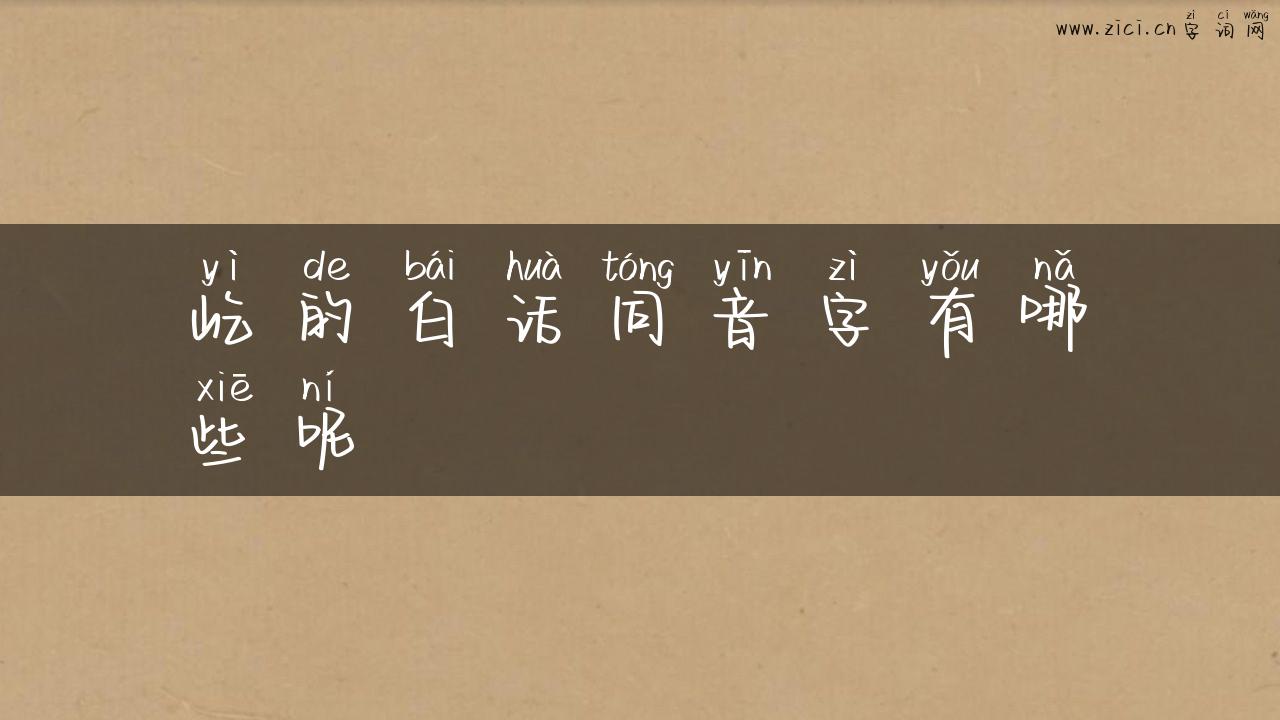 zì cí wǎng
www.zici.cn 字词网
yì de bái huà tóng yīn zì yǒu nǎ
屹的白话同音字有哪
xiē ní
些呢